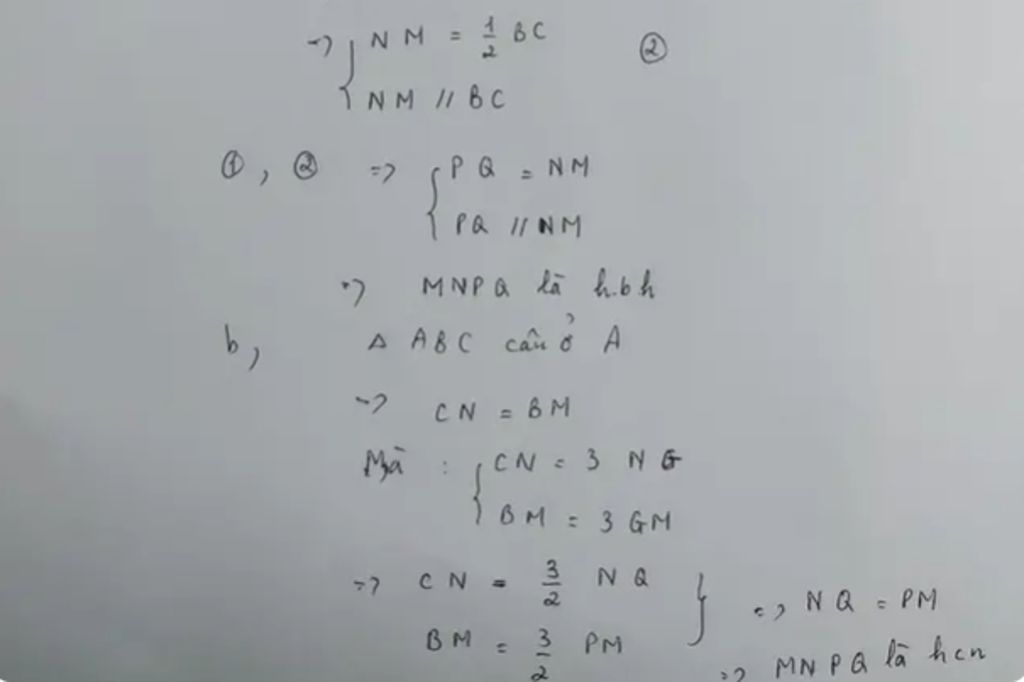 => { NM = 1/2 BC ②
NM // BC
①, ② => { PQ = NM
PQ // NM
=> MNPQ là h.b.h
b, Δ ABC cân ở A
=> CN = BM
Mà : { CN = 3 NG
BM = 3 GM
=> CN = 3/2 NQ } => NQ = PM
BM = 3/2 PM
=> MNPQ là hcn